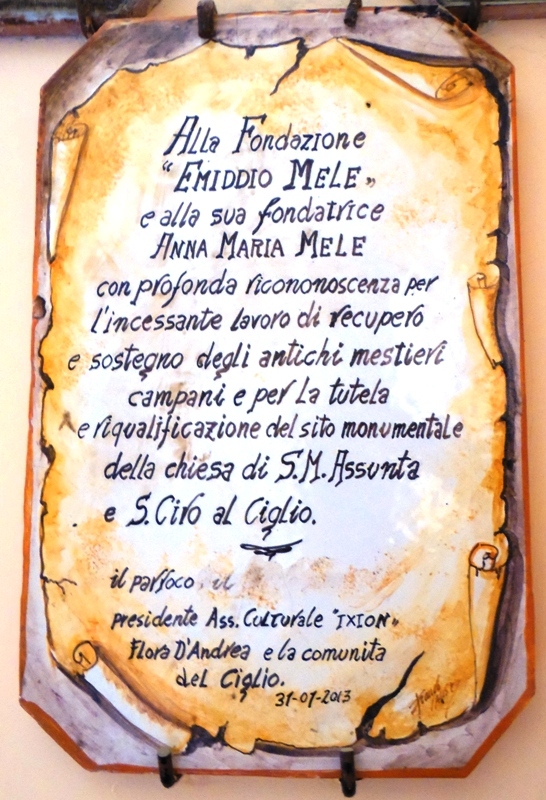 Alla Fondazione
"EMIDDIO MELE"
e alla sua fondatrice
ANNA MARIA MELE
con profonda ricononoscenza per
l'incessante lavoro di recupero
e sostegno degli antichi mestieri
campani e per la tutela
e riqualificazione del sito monumentale
della chiesa di S.M. Assunta
e S. Ciro al Ciglio.
il parroco, il
presidente Ass. Culturale "IXION"
Flora D'Andrea e la comunita
del Ciglio.
31-01-2013